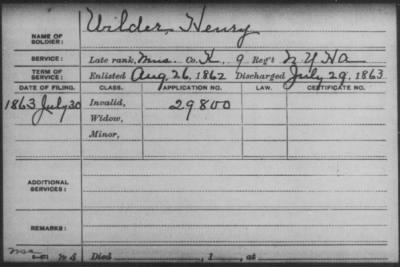 Wilder, Henry
NAME OF SOLDIER:
SERVICE: Late rank, Mus. Co. K, 9 Reg't N Y H A
TERM OF SERVICE: Enlisted Aug. 26, 1862 Discharged July 29, 1863
DATE OF FILING. CLASS. APPLICATION NO. LAW. CERTIFICATE NO.
1863 July 30 Invalid, 29800
Widow,
Minor,
ADDITIONAL SERVICES:
REMARKS:
Died , 1 , at